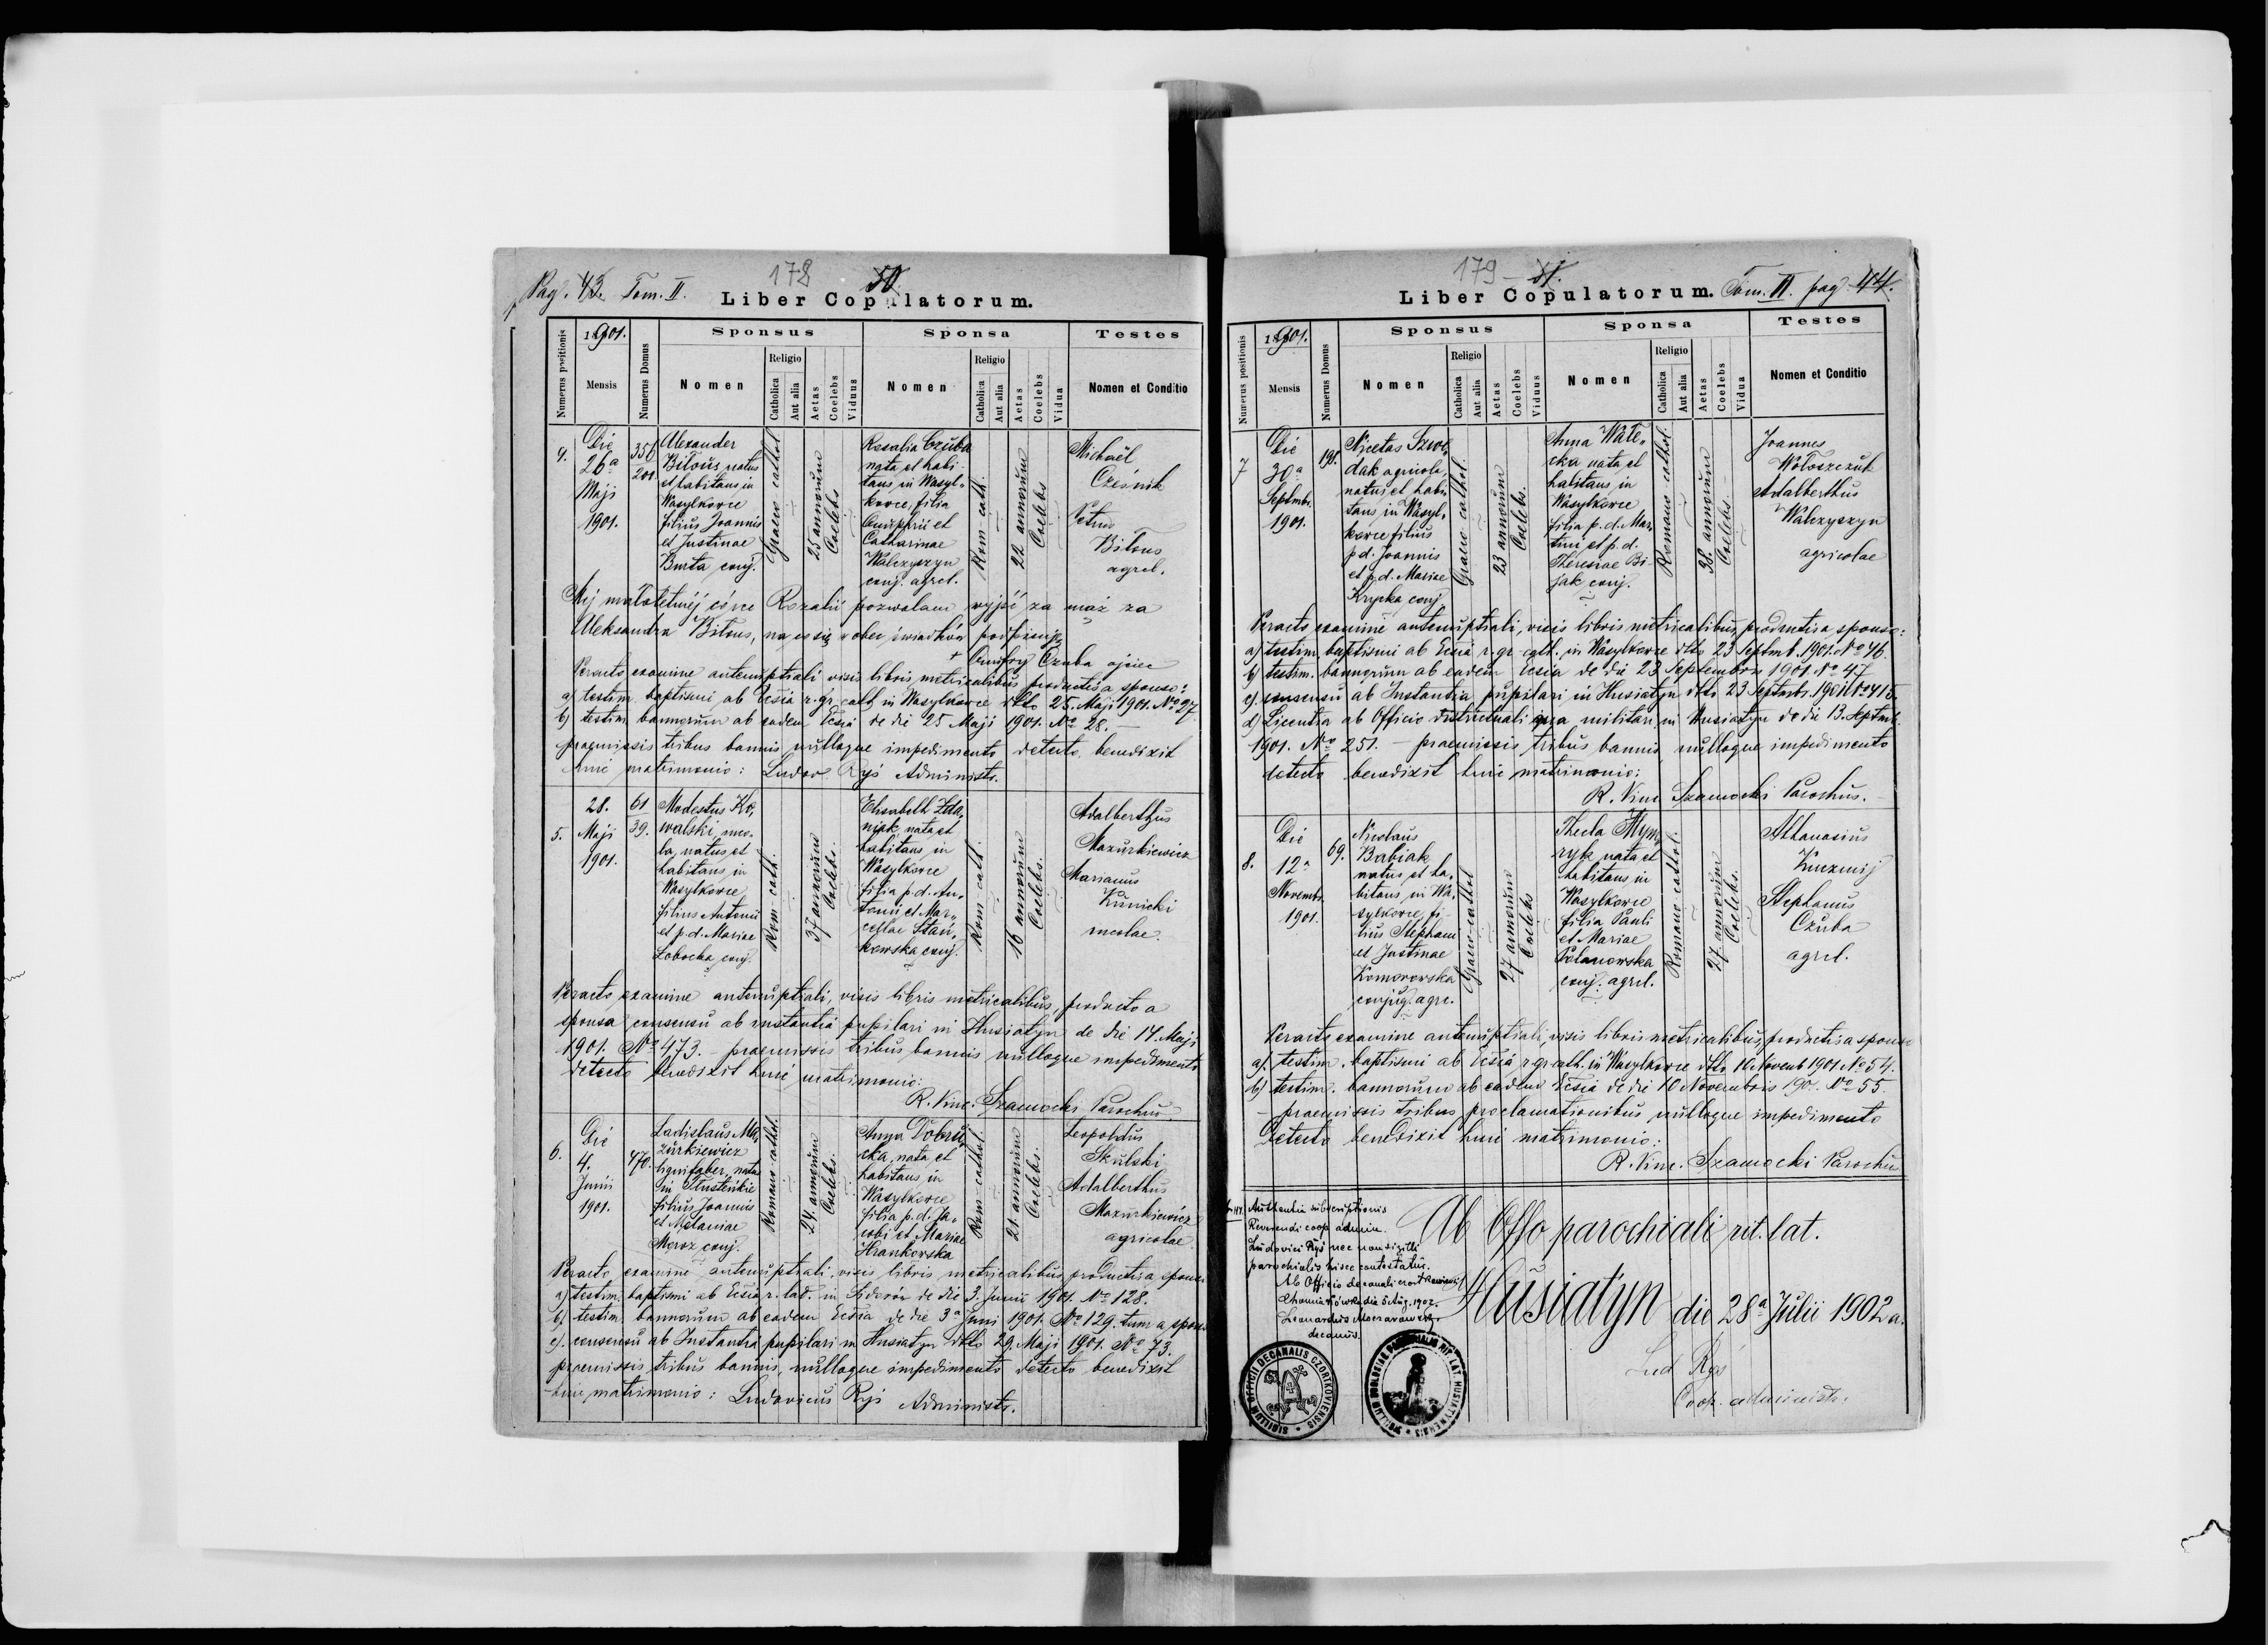 Pag. 43. Tom. II.
178
50.
Liber Copulatorum.
Numerus positionis
1901.
Mensis
Numerus Domus
Sponsus
Nomen
Religio
Catholica
Aut alia
Aetas
Coelebs
Viduus
Sponsa
Nomen
Religio
Catholica
Aut alia
Aetas
Coelebs
Vidua
Testes
Nomen et Conditio
4.
Die
26a
Maji
1901.
356
201
Alexander
Bilous natus
et habitans in
Wasylkowce
filius Joannis
et Justinae
Burta conj.
Graeco cathol.
25 annorum
Coelebs
Rosalia Czuba
nata et habi-
tans in Wasyl-
kowce, filia
Onuphrii et
Catharinae
Walczyszyn
conj. agrel.
Rom-cath.
22 annorum
Coelebs
Michaël
Cześnik
Petrus
Bilous
agrel.
Mej małoletniéj córce Rozalii pozwalam wyjść za mąż za
Aleksandra Bilous, na co się wobec świadków podpisuję
+ Onufry Czuba ojciec
Peracto examine antenuptiali visis libris metricalibus productis a sponso:
a) testim. baptismi ab Ecsia r. gr. cath. in Wasylkowce ddto 25. Maji 1901. No 27
b) testim. bannorum ab eadem Ecsia de die 25 Maji 1901. No 28. –
praemissis tribus bannis nulloque impedimento detecto benedixit
huic matrimonio: Ludov. Ryś Administr.
5.
28.
Maji
1901.
61
39.
Modestus Ko-
walski, inco-
la, natus et
habitans in
Wasylkowce
filius Antonii
et p. d. Mariae
Łobocka conj.
Rom-cath.
37 annorum
Coelebs.
Elisabeth Zda-
niak nata et
habitans in
Wasylkowce
filia p. d. An-
tonii et Mar-
cellae Stań-
kowska conj.
Rom-cath.
16 annorum
Coelebs.
Adalberthus
Mazurkiewicz
Marianus
Kunicki
incolae.
Peracto examine antenuptiali, visis libris metricalibus, producto a
sponsa consensu ab instantia pupilari in Husiatyn de die 14. Maji
1901. No 473. – praemissis tribus bannis nulloque impedimento
detecto benedixit huic matrimonio:
R. Vinc. Szamocki Parochus
6.
Die
4.
Junii
1901.
470.
Ladislaus Ma-
zurkiewicz
lignifaber, natus
in Trusteńkie
filius Joannis
et Melaniae
Moroz conj.
Romano-cathol.
24. annorum
Coelebs.
Anna Dobru-
cka, nata et
habitans in
Wasylkowce
filia p. d. Ja-
cobi et Mariae
Hrankowska
Rom-cathol.
21. annorum
Coelebs.
Leopoldus
Skulski
Adalberthus
Mazurkiewicz
agricolae
Peracto examine antenuptiali, visis libris metricalibus productis a sponso
a) testim. baptismi ab Ecsia r. lat. in Sidorów de die 3. Junii 1901. No 128.
b) testim. bannorum ab eadem Ecsia de die 3a Juni 1901. No 129. tum a sponsa
c) consensu ab Instantia pupilari in Husiatyn ddto 29. Maji 1901. No 73.
praemissis tribus bannis, nulloque impedimento detecto benedixit
huic matrimonio: Ludovicus Ryś Administr.
179
51.
Liber Copulatorum.
Tom. II. pag. 44.
Numerus positionis
1901.
Mensis
Numerus Domus
Sponsus
Nomen
Religio
Catholica
Aut alia
Aetas
Coelebs
Viduus
Sponsa
Nomen
Religio
Catholica
Aut alia
Aetas
Coelebs
Vidua
Testes
Nomen et Conditio
7
Die
30a
Septmbr.
1901.
198.
Nicetas
dak agricola,
natus et habi
tans in Wasyl-
kowce filius
p d. Joannis
et p. d. Mariae
Krycka conj
Graeco cathol.
23 annorum
Coelebs.
Anna Wate-
cka nata et
habitans in
Wasylkowce
filia p. d. Mar-
tini et p. d.
Theresiae Bi-
jak conj.
Romano-cathol.
38. annorum
Coelebs.
Joannes
Wołoszczuk
Adalberthus
Walczyszyn
agricolae
Peracto examine antenuptiali, visis libris metricalibus, productis a sponso:
a) testim. baptismi ab Ecsia r. gr. cath. in Wasylkowce ddto 23 Septmb. 1901. No 46.
b) testim. bannorum ab eadem Ecsia de die 23 Septembris 1901. No 47
c). consensu ab Instantia pupilari in Husiatyn ddto 23 Septmbr. 1901
d) Licentia ab Officio districtuali qua militari in Husiatyn de die 13. Septmb.
1901. No 251. – praemissis tribus bannis nulloque impedimento
detecto benedixit huic matrimonio:
R. Vinc Szamocki Parochus.
8.
Die
12a
Novembr.
1901.
69.
Nicolaus
Babiak
natus et ha-
bitans in Wa-
sylkowce, fi-
lius Stephani
et Justinae
Komorowska
conjug. agrc.
Graeco-cathol
27 annorum
Coelebs
Thecla Hym-
ryk nata et
habitans in
Wasylkowce
filia Pauli
et Mariae
Polanowska
conj. agrel.
Romano-cathol.
27. annorum
Coelebs.
Athanasius
Kuczmij
Stephanus
Czuba
agrel.
Peracto examine antenuptiali, visis libris metricalibus, productis a sponso
a). testim. baptismi ab Ecsia r. gr. cath. in Wasylkowce ddto 10 Novemb 1901 No 54.
b) testim. bannorum ab eadem Ecsia de die 10 Novembris 190. No 55
– praemissis tribus proclamationibus nulloque impedimento
detecto benedixit huic matrimonio:
R. Vinc. Szamocki Parochus
Authentia subscriptionis
Reverendi coop. admin.
Ludovici Ryś nec non sigilli
parochialis hisce contestatur.
Ab Officio decanali
die 5 Aug. 1902.
Leonardus
decanus.
Ab Offo parochiali rit. lat.
Husiatyn die 28a Julii 1902 a.
Lud Ryś
Coop. administr.
SIGILLUM OFFICII DECANALIS CZORTKOVIENSIS
SIGILLUM ECCLESIAE PAROCHIALIS RIT. LAT. HUSIATYNENSIS